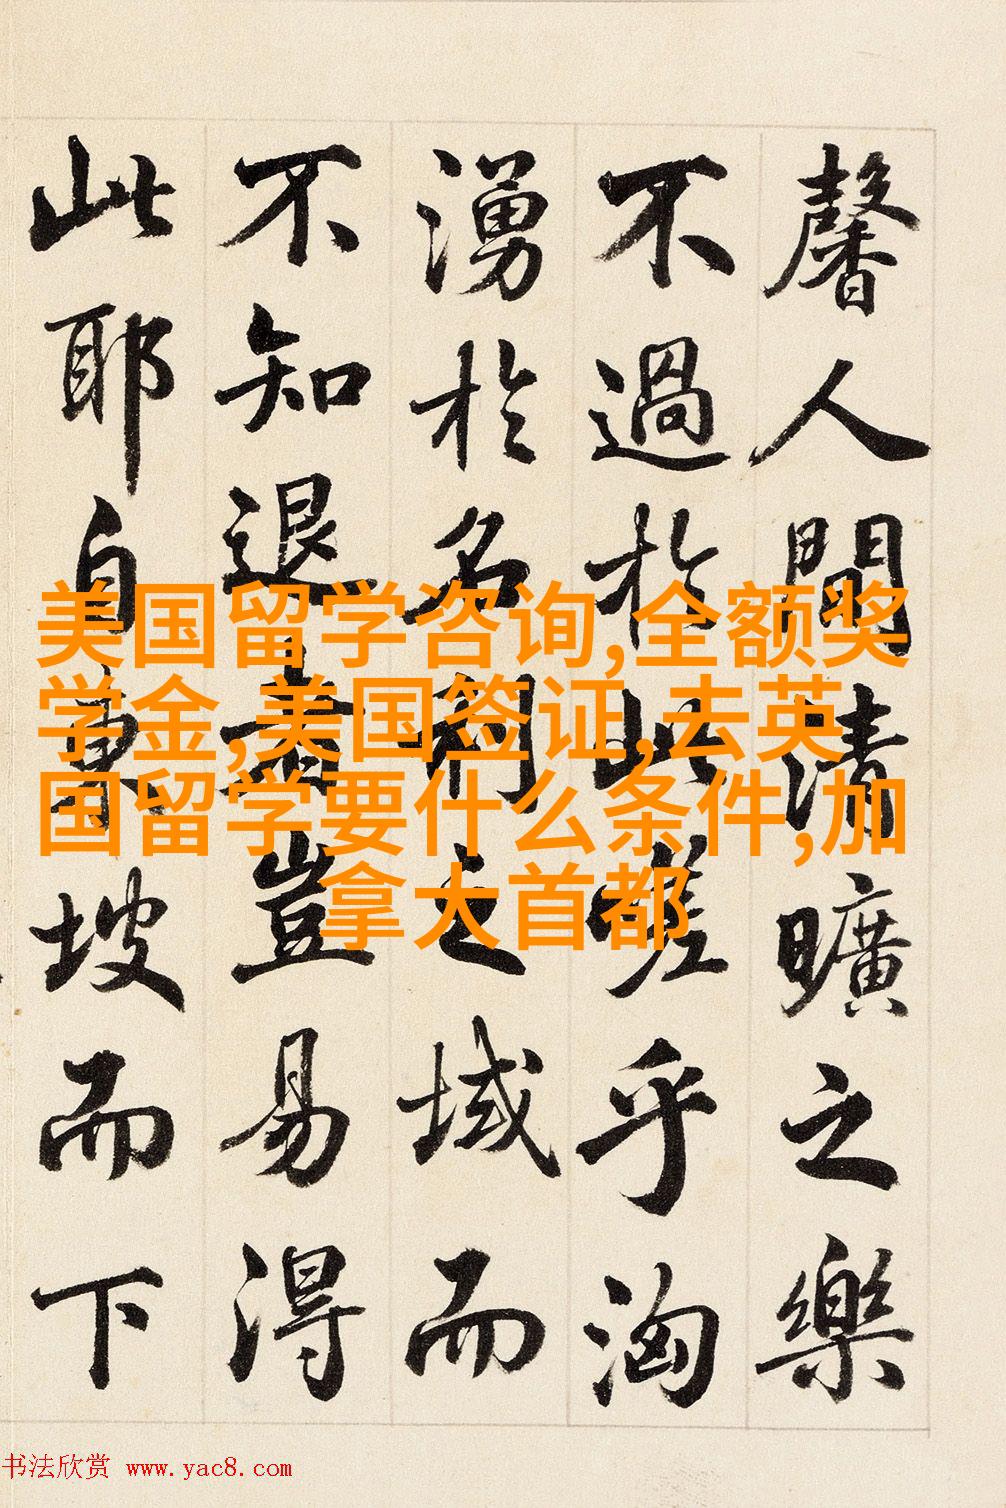 馨人間清曠之樂
不過於此嗟乎洶
湧於名利之域而
不知退者豈易得
此耶自東坡而下
美国留学咨询,全额奖
学金,美国签证,去英
国留学要什么条件,加
拿大首都
书法欣赏 www.yac8.com